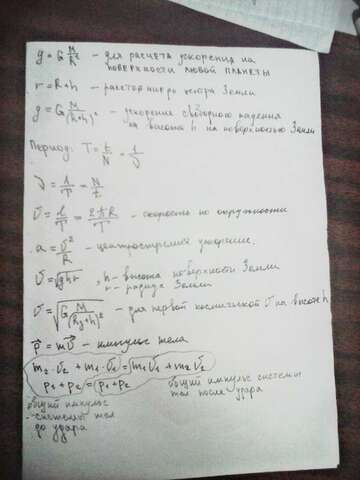 g = G M/R² - для расчета ускорения на
поверхности любой планеты
r = R+h - расстояние до центра Земли
g = G M/(R+h)² - ускорение свободного падения
на высоте h на поверхностью Земли
Период: T = t/N = 1/ν
ν = 1/T = N/t
υ = l/T = 2πR/T - скорость по окружности
a = υ²/R - центростремит ускорение
υ = √ghr, h - высота поверхности Земли
r - радиус Земли
υ = √G M/(Rз+h)² - для первой космической υ на высоте h
p⃗ = mυ⃗ - импульс тела
m₂·υ₂ + m₁·υ₁ = m₁υ₁ + m₂υ₂
p₁+p₂ = p₁+p₂
общий импульс системы
тел после удара
общий импульс
системы тел
до удара